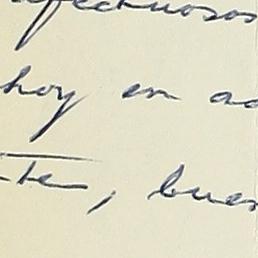 afectuosos
hoy en ad
-te, buen